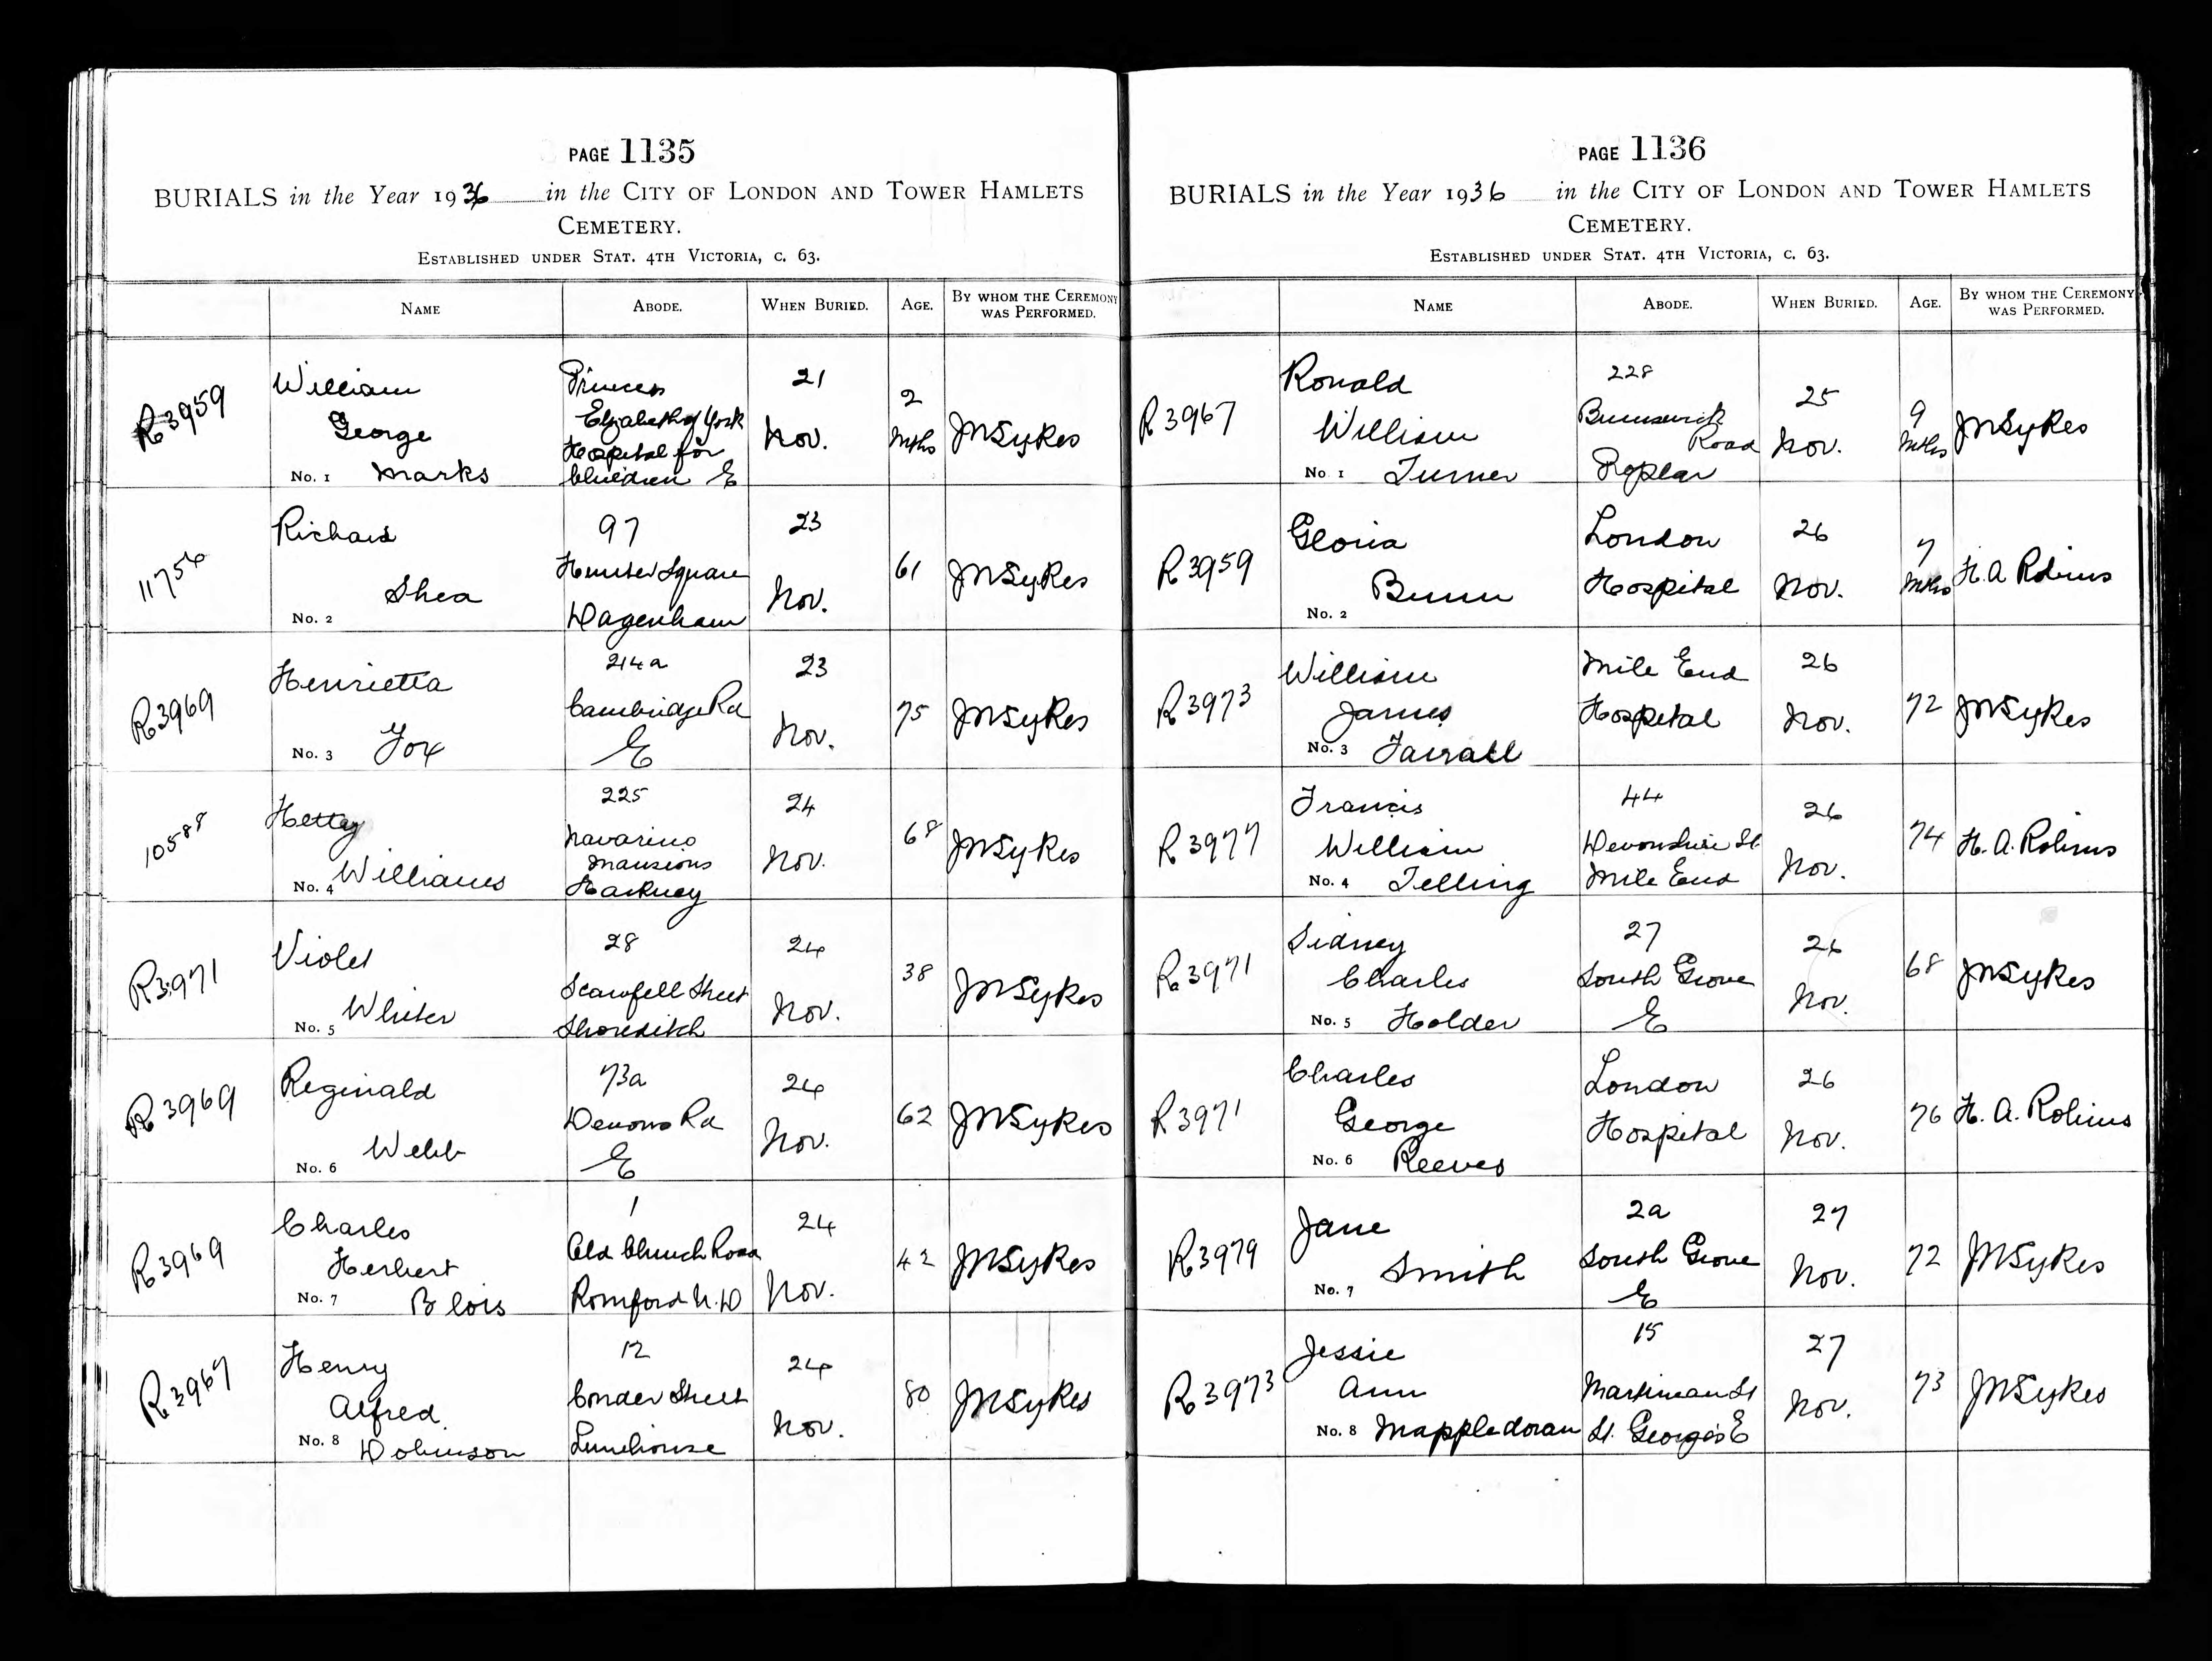 PAGE 1135
BURIALS in the Year 1936 in the CITY OF LONDON AND TOWER HAMLETS
CEMETERY.
ESTABLISHED UNDER STAT. 4TH VICTORIA, C. 63.
NAME ABODE. WHEN BURIED. AGE. BY WHOM THE CEREMONY WAS PERFORMED.
R3959
William
George
No. 1 Marks
Princess
Elizabeth of York
Hospital for
Children E
21
Nov.
2
Mths
JNSykes
11754
Richard
Shea
No. 2
97
Hunter Square
Dagenham
23
Nov.
61
JNSykes
R3969
Henrietta
No. 3 Fox
214a
Cambridge Rd
E
23
Nov.
75
JNSykes
10588
Hettey
No. 4 Williams
225
Navarino
Mansions
Hackney
24
Nov.
68
JNSykes
R3971
Violet
No. 5 Whiter
28
Scawfell Street
Shoreditch
24
Nov.
38
JNSykes
R3969
Reginald
Webb
No. 6
73a
Devons Rd
E
24
Nov.
62
JNSykes
R3969
Charles
Herbert
No. 7 Blois
1
Old Church Road
Romford
24
Nov.
42
JNSykes
R3967
Henry
Alfred
No. 8 Dobinson
12
Conder Street
Limehouse
24
Nov.
80
JNSykes
PAGE 1136
BURIALS in the Year 1936 in the CITY OF LONDON AND TOWER HAMLETS
CEMETERY.
ESTABLISHED UNDER STAT. 4TH VICTORIA, C. 63.
NAME ABODE. WHEN BURIED. AGE. BY WHOM THE CEREMONY WAS PERFORMED.
R3967
Ronald
William
No. 1 Turner
228
Brunswick
Road
Poplar
25
Nov.
9
Mths
JNSykes
R3959
Gloria
Bunn
No. 2
London
Hospital
26
Nov.
7
Mths
H. A Robins
R3973
William
James
No. 3 Farrall
Mile End
Hospital
26
Nov.
72
JNSykes
R3977
Francis
William
No. 4 Telling
44
Devonshire St
Mile End
26
Nov.
74
H. A. Robins
R3971
Sidney
Charles
No. 5 Holder
27
South Grove
E
26
Nov.
68
JNSykes
R3971
Charles
George
No. 6 Reeves
London
Hospital
26
Nov.
76
H. A. Robins
R3979
Jane
Smith
No. 7
2a
South Grove
E
27
Nov.
72
JNSykes
R3973
Jessie
Ann
No. 8 Mappledoram
15
Martineau St
St. George's E
27
Nov.
73
JNSykes